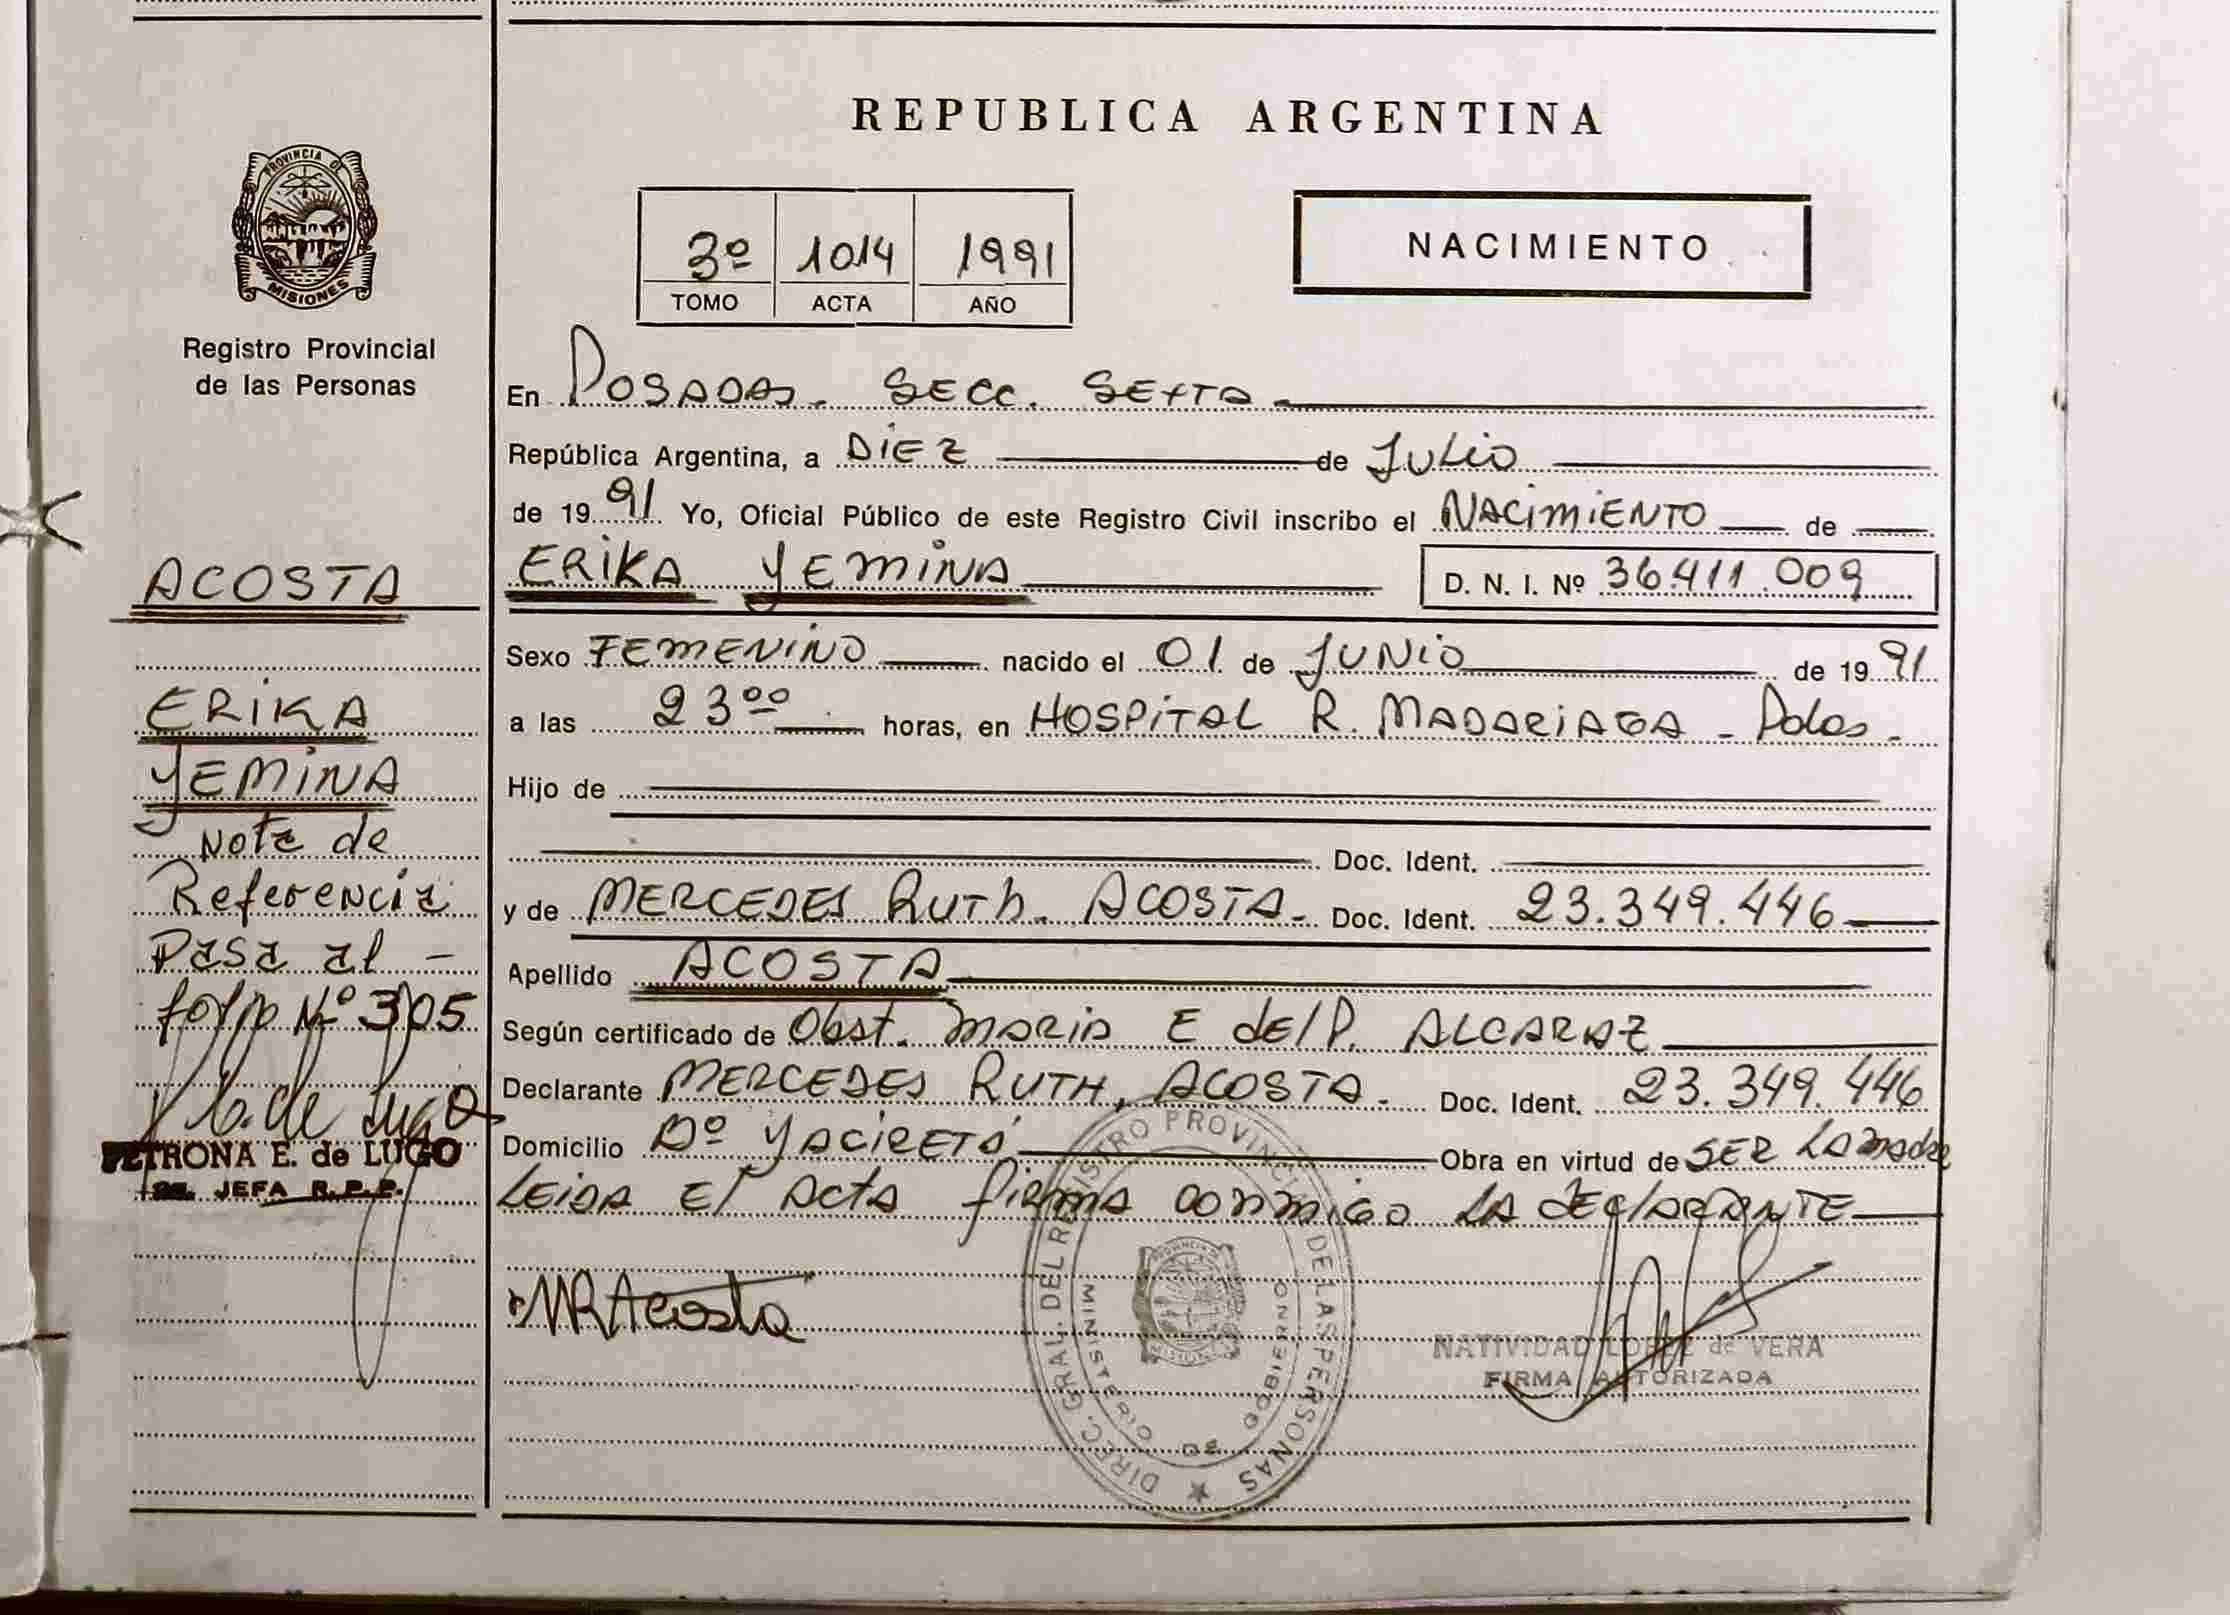 REPUBLICA ARGENTINA
PROVINCIA DE
MISIONES
Registro Provincial
de las Personas
3º 1014 1991
TOMO ACTA AÑO
NACIMIENTO
En POSADAS. SECC. SEXTA.
República Argentina, a DIEZ de JULIO
de 1991 Yo, Oficial Público de este Registro Civil inscribo el NACIMIENTO de
ERIKA YEMINA D. N. I. Nº 36.411.009
Sexo FEMENINO nacido el 01 de JUNIO de 1991
a las 23ºº horas, en HOSPITAL R. MADARIAGA - Pdas.
Hijo de
Doc. Ident.
y de MERCEDES RUTH. ACOSTA. Doc. Ident. 23.349.446
Apellido ACOSTA
Según certificado de Obst. MARIA E del P. ALCARAZ
Declarante MERCEDES RUTH, ACOSTA. Doc. Ident. 23.349.446
Domicilio Bº YACIRETÁ Obra en virtud de SER LA MADRE
LEIDA El ACTA firma conmigo LA dEClARANTE
MRAcosta
NATIVIDAD LOPEZ de VERA
FIRMA AUTORIZADA
DIREC. GRAL. DEL REGISTRO PROVINCIAL DE LAS PERSONAS
MINISTERIO DE GOBIERNO
PROVINCIA DE
MISIONES
ACOSTA
ERIKA
YEMINA
Nota de
Referencia
Pasa al -
folio Nº 305
PETRONA E. de LUGO
JEFA R.P.P.